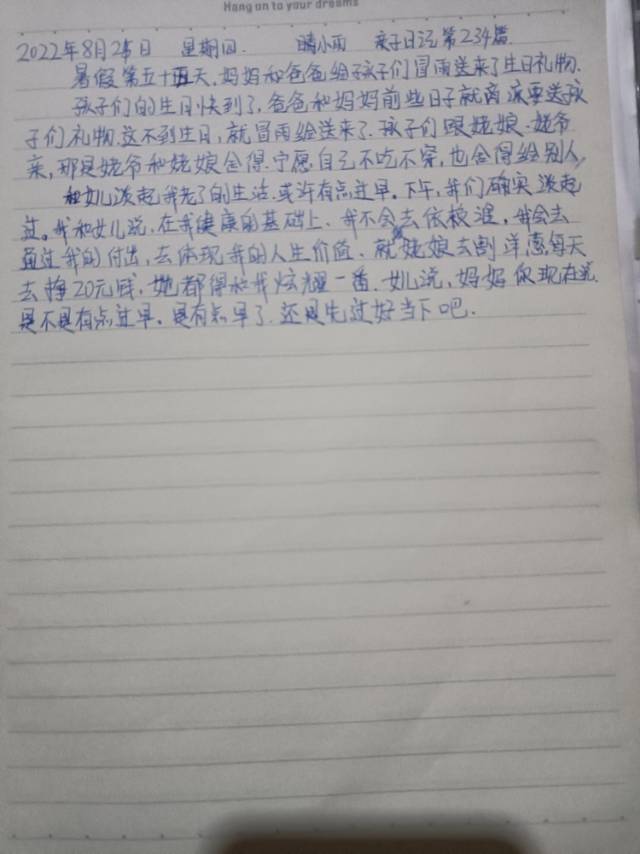 Hang on to your dreams
2022年8月25日 星期四. 晴小雨 亲子日记第234篇.
暑假第五十五天.妈妈和爸爸给孩子们冒雨送来了生日礼物.
孩子们的生日快到了,爸爸和妈妈前些日子就商议要送孩
子们礼物.这不到生日,就冒雨给送来了.孩子们跟姥娘.姥爷
亲,那是姥爷和姥娘舍得.宁愿自己不吃不穿,也舍得给别人,
和女儿谈起我老了的生活.或许有点过早。下午,我们确实谈起
过。我和女儿说.在我健康的基础上.我不会去依赖谁,我会去
通过我的付出,去体现我的人生价值.就姥娘去割洋葱每天
去挣20元钱.她都得和我炫耀一番.女儿说,妈妈你现在说.
是不是有点过早。是有点早了.还是先过好当下吧.